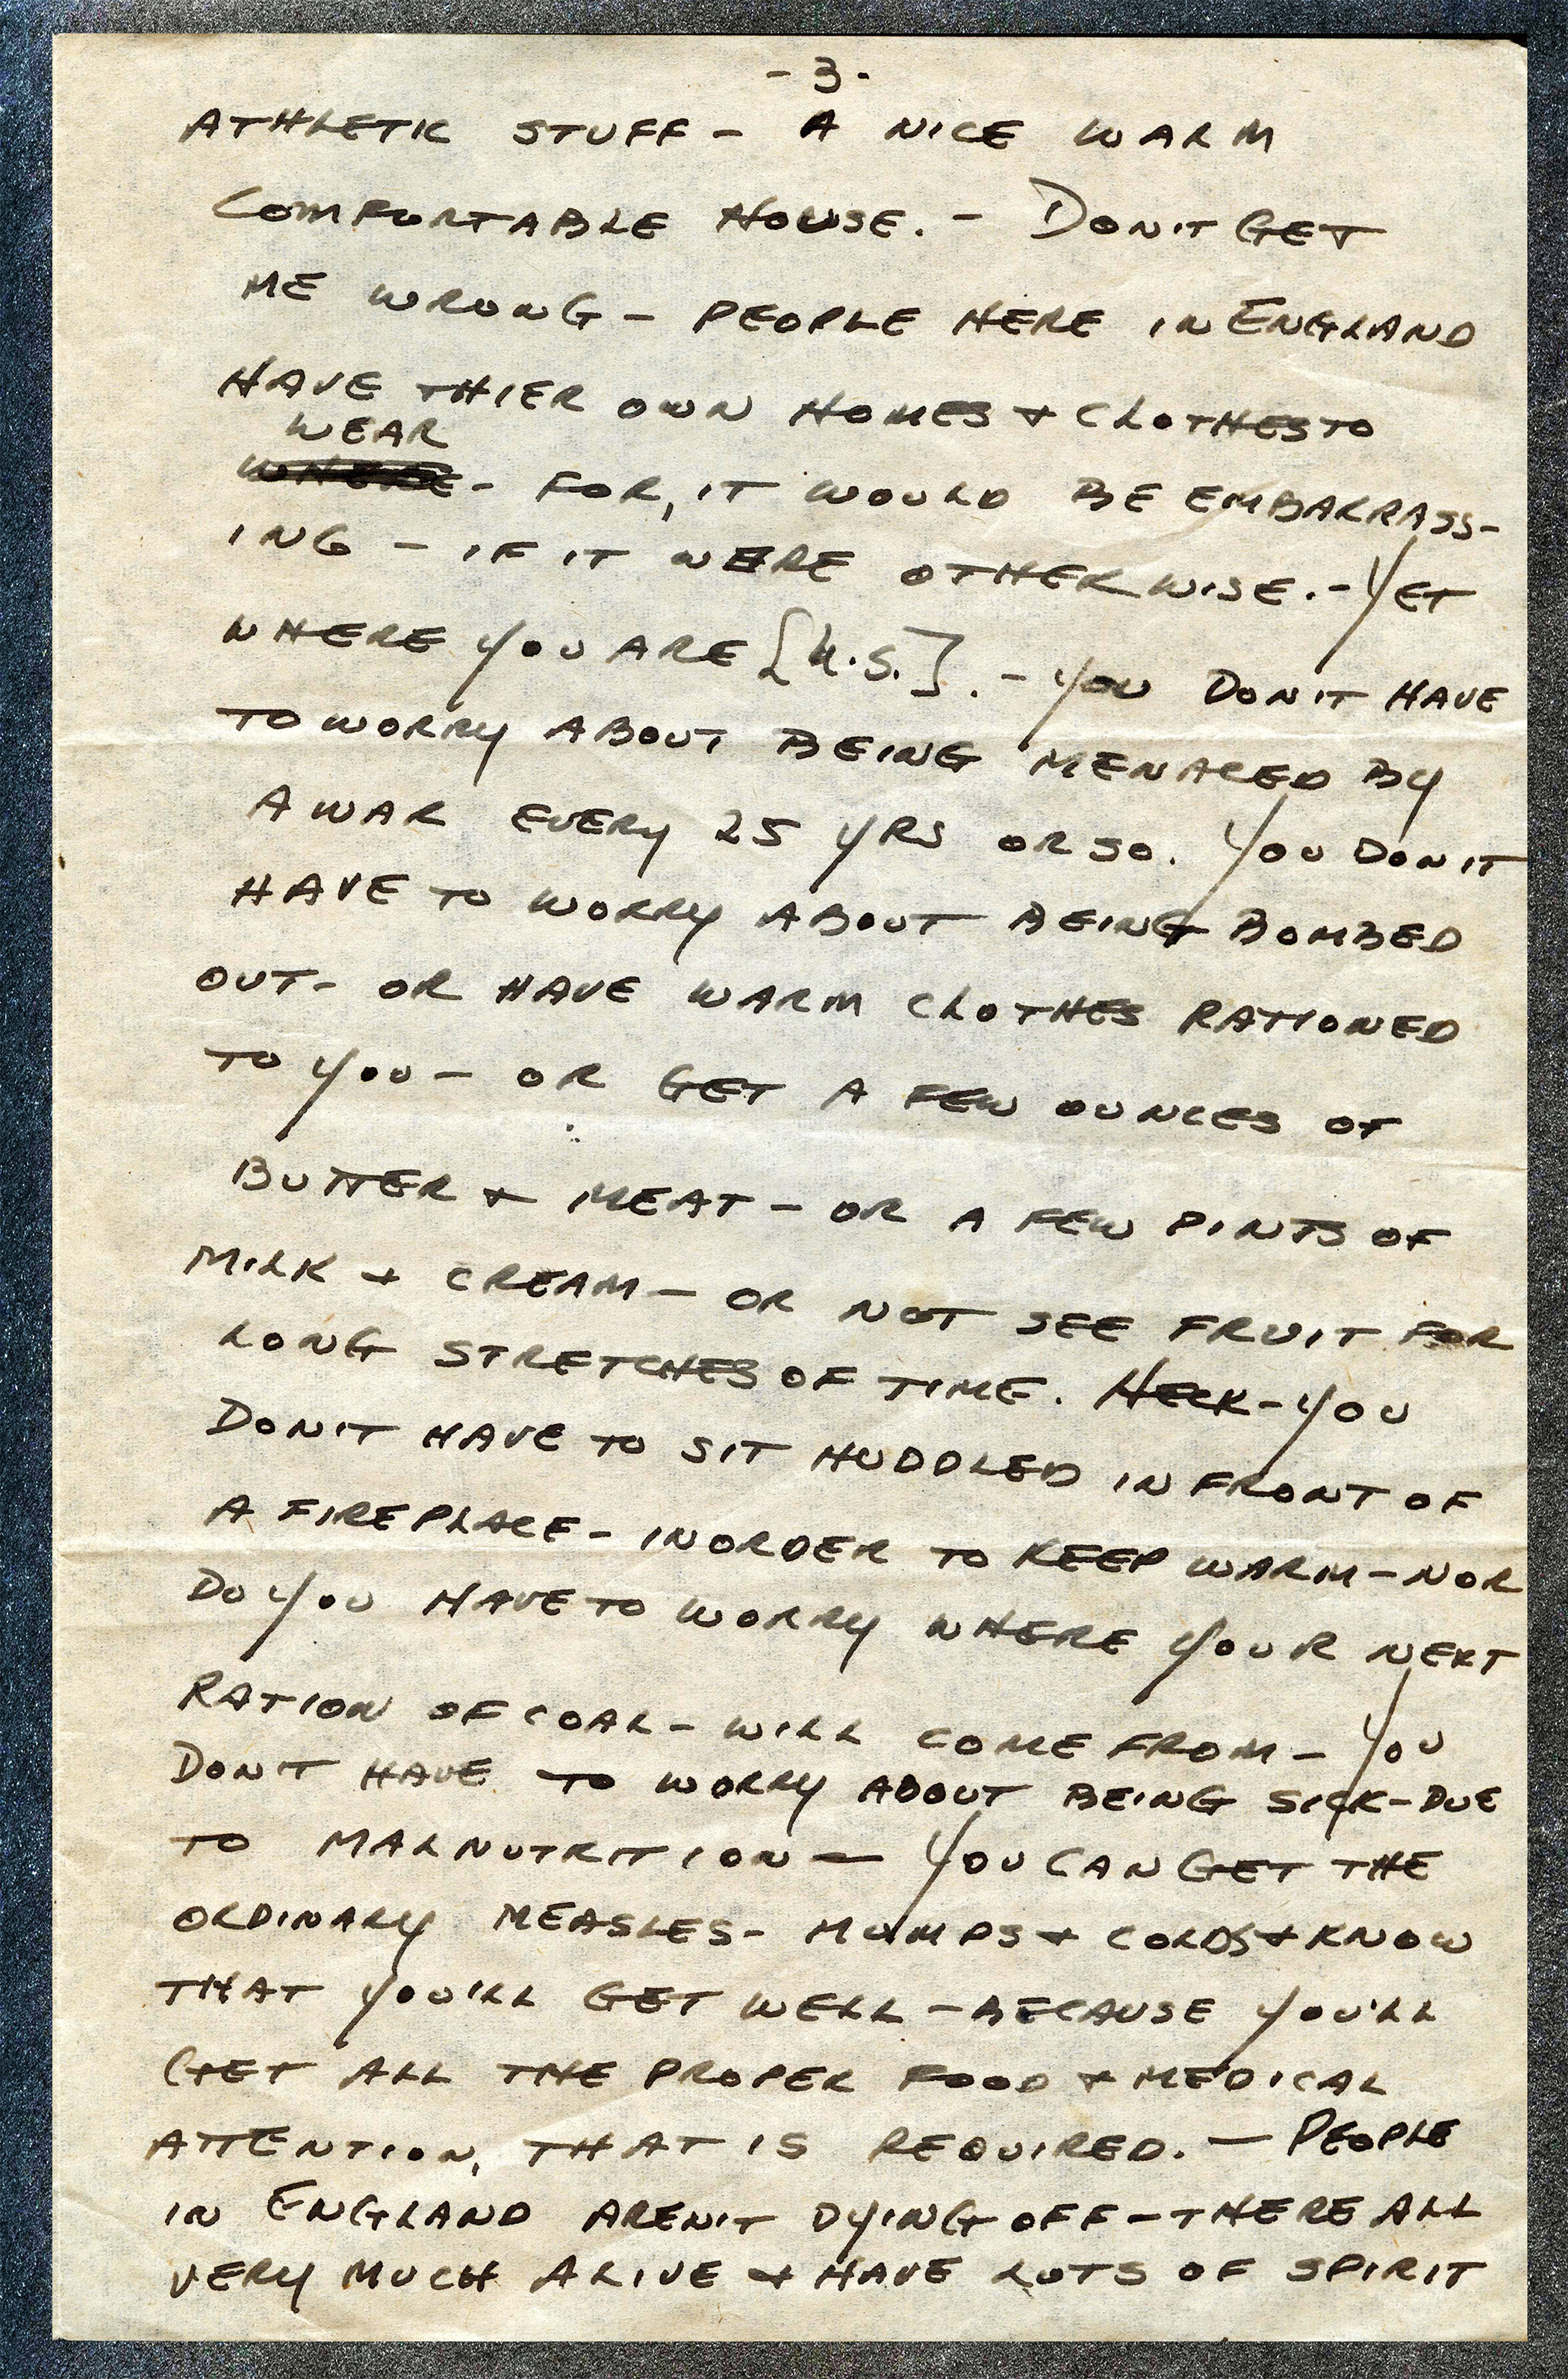 - 3 -
ATHLETIC STUFF - A NICE WARM
COMFORTABLE HOUSE. - DON'T GET
ME WRONG - PEOPLE HERE IN ENGLAND
HAVE THIER OWN HOMES & CLOTHES TO
WEAR
- FOR, IT WOULD BE EMBARRASS-
ING - IF IT WERE OTHERWISE. - YET
WHERE YOU ARE [U.S.]. - YOU DON'T HAVE
TO WORRY ABOUT BEING MENACED BY
A WAR EVERY 25 YRS OR SO. YOU DON'T
HAVE TO WORRY ABOUT BEING BOMBED
OUT - OR HAVE WARM CLOTHES RATIONED
TO YOU - OR GET A FEW OUNCES OF
BUTTER & MEAT - OR A FEW PINTS OF
MILK & CREAM - OR NOT SEE FRUIT FOR
LONG STRETCHES OF TIME. HECK - YOU
DON'T HAVE TO SIT HUDDLED IN FRONT OF
A FIREPLACE - INORDER TO KEEP WARM - NOR
DO YOU HAVE TO WORRY WHERE YOUR NEXT
RATION OF COAL - WILL COME FROM - YOU
DON'T HAVE TO WORRY ABOUT BEING SICK - DUE
TO MALNUTRITION - YOU CAN GET THE
ORDINARY MEASLES - MUMPS & COLDS & KNOW
THAT YOU'LL GET WELL - BECAUSE YOU'LL
GET ALL THE PROPER FOOD & MEDICAL
ATTENTION, THAT IS REQUIRED. - PEOPLE
IN ENGLAND AREN'T DYING OFF - THERE ALL
VERY MUCH ALIVE & HAVE LOTS OF SPIRIT